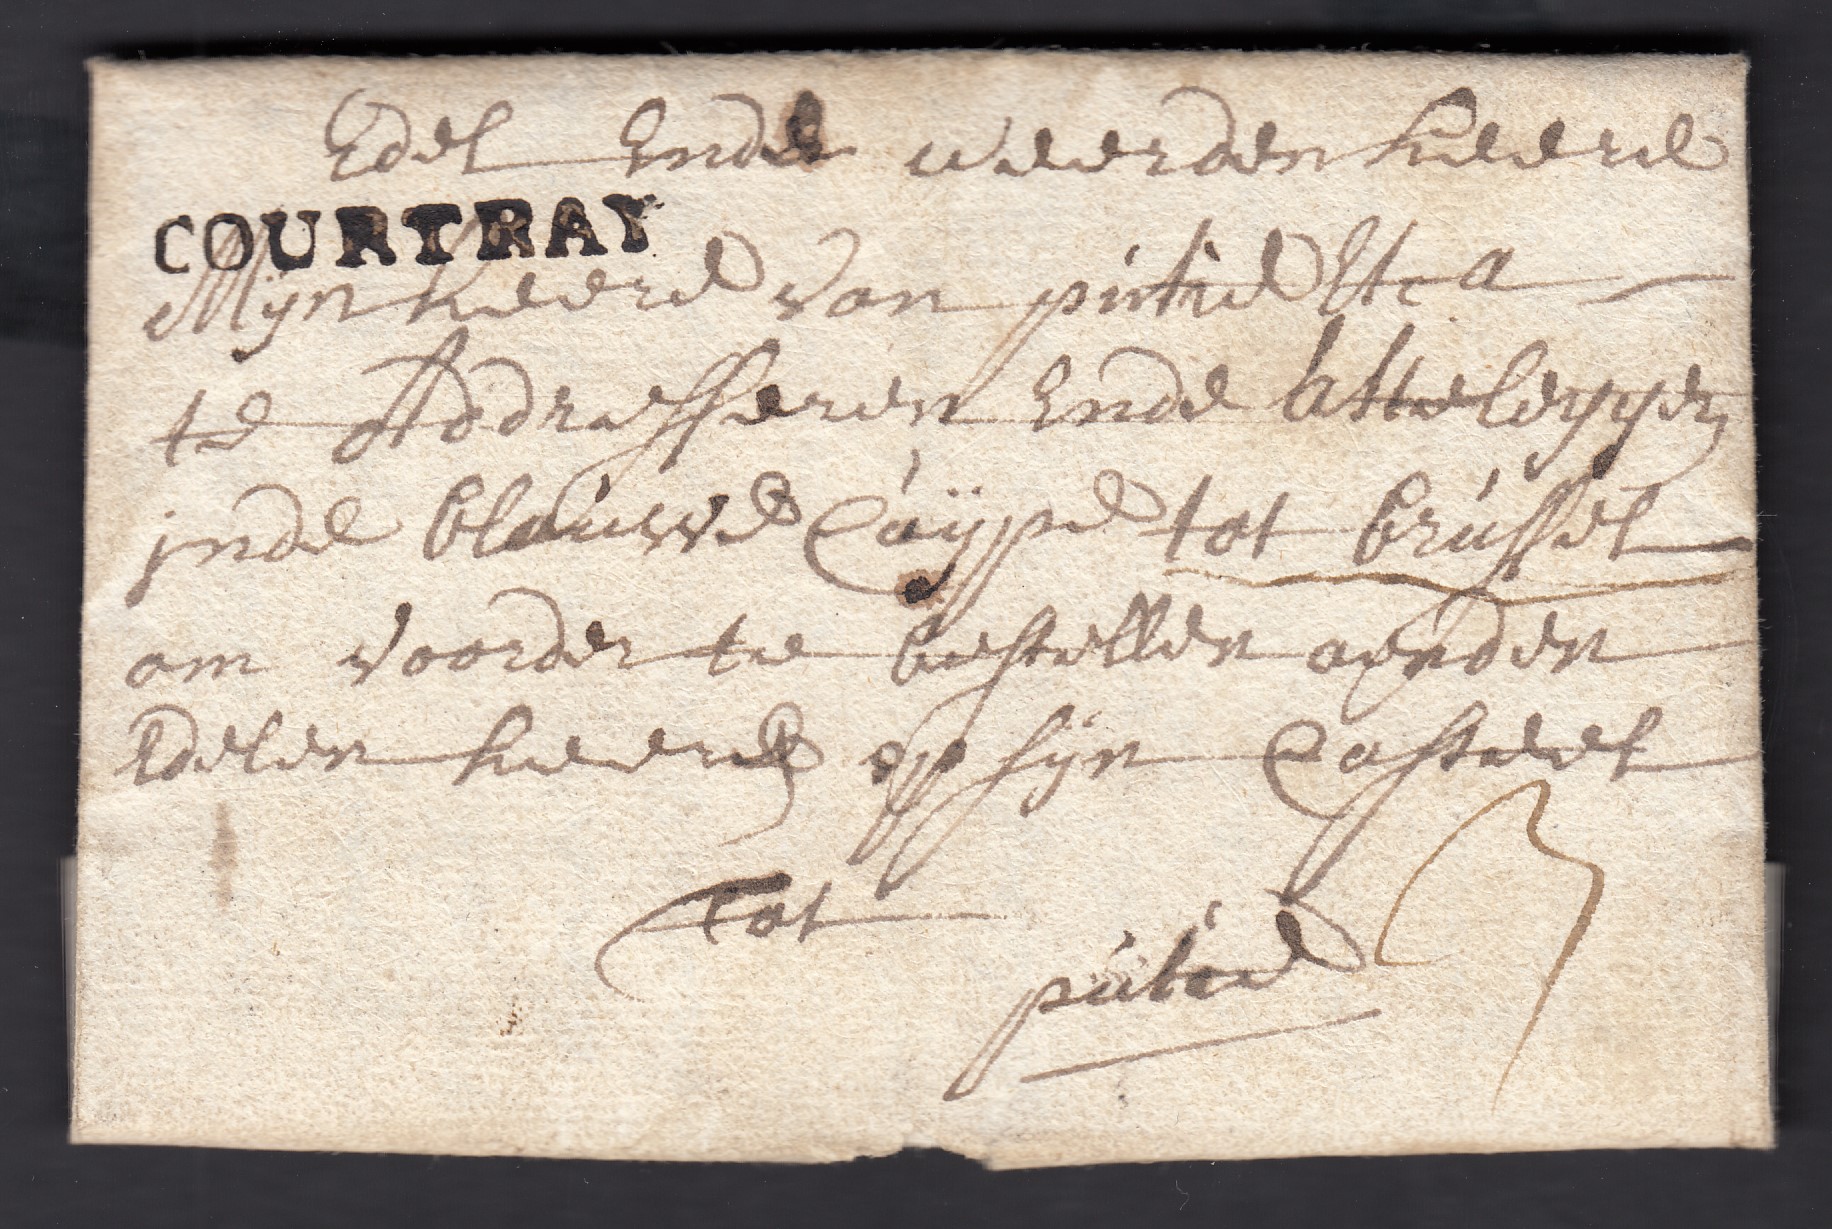 Edel Ende weerden heere
COURTRAY
Mijn heere van pittie Etca
te Addresseren Ende
inde blauwe Cuÿpe tot brússel
om voorder te bestellen aenden
Edelen heere op sijn Casteel
Tot
3